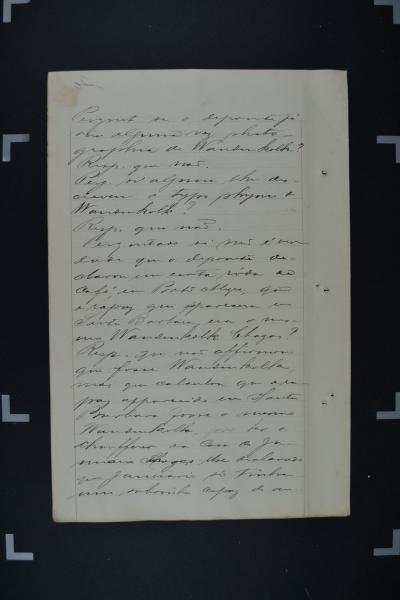 Pergunt. se o deponente já
viu alguma vez photo-
graphia de Wandenkolk?
Resp. que não.
Perg. si alguem lhe des-
creveu o typo physico de
Wandenkolk?
Resp. que não.
Perguntado si não é ver-
dade que o deponente de-
clarou em certa roda de
Café em Porto Alegre, que
o rapaz que apparecera em
Santa Barbara era o mes-
mo Wandenkolk Chagas?
Resp. que não affirmou
que fosse Wandenkolk,
mas que calculou que o ra-
paz apparecido em Santa
Barbara fosse o mesmo
Wandenkolk por ter o
chauffeur da Casa de Ja-
nuario Chagas lhe declarado
que Januario só tinha
um sobrinho capaz de an-